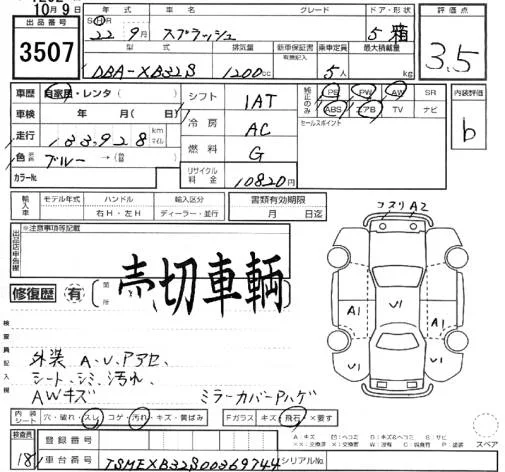 10月9日
出品番号
3507
年式 車名 グレード ドア・形状
SH 22年9月 スプラッシュ 5 箱
型式 排気量 新車保証書 有無記入 乗車定員 最大積載量
DBA-XB32S 1200cc 5人 kg
評価点
3.5
内装評価
b
車歴 自家用・レンタ( )
車検 年 月( 日)
走行 133,928 km マイル
色 ブルー→(替 )
カラーNo.
シフト 1AT
冷房 AC
燃料 G
リサイクル料金 10820円
純正のみ
PS PW AW SR
ABS エアB TV ナビ
セールスポイント
輸入車 モデル年式 ハンドル 輸入区分
右H・左H ディーラー・並行
書類有効期限
月 日迄
出品店申告欄
※注意事項等記載
売切車輌
修復歴 有 箇所
検査員記入欄
外装 A、U、Pアセ、
シート・シミ、汚れ、
AWキズ
ミラーカバーPハゲ
コスリ A2
U1
A1
U1
A1
U1
U1
内装シート 穴・破れ・スレ コゲ・汚れ・キズ・黄ばみ
Fガラス キズ・飛石・×要す
検査員
18
登録番号
車台番号 TSMEXB32S00369744 シリアルNo.
スペア